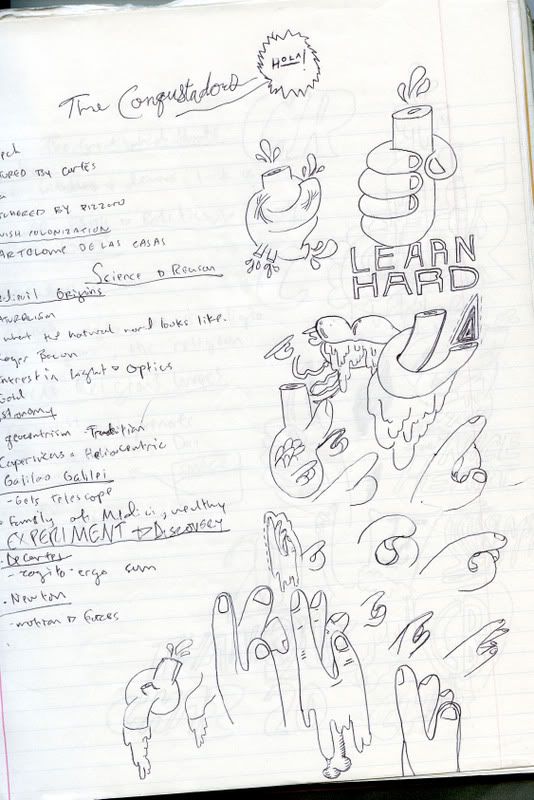 HOLA!
The Conqustadors
TURED BY CORTES
QUERED BY PIZZORO
NISH COLONIZATION
ARTOLOME DE LAS CASAS
LEARN
HARD
Science & Reason
Origins
ATURALISM
what the natural world looks like.
oger Bacon
nterest in light & Optics
stronomy
geocentrism - Tradition
Copernicus & Heliocentric
Galileo Galilei
- Gets telescope
Family of Medici, wealthy
EXPERIMENT & DISCOVERY
Decartes
- cogito ergo sum
Newton
- motion & Forces